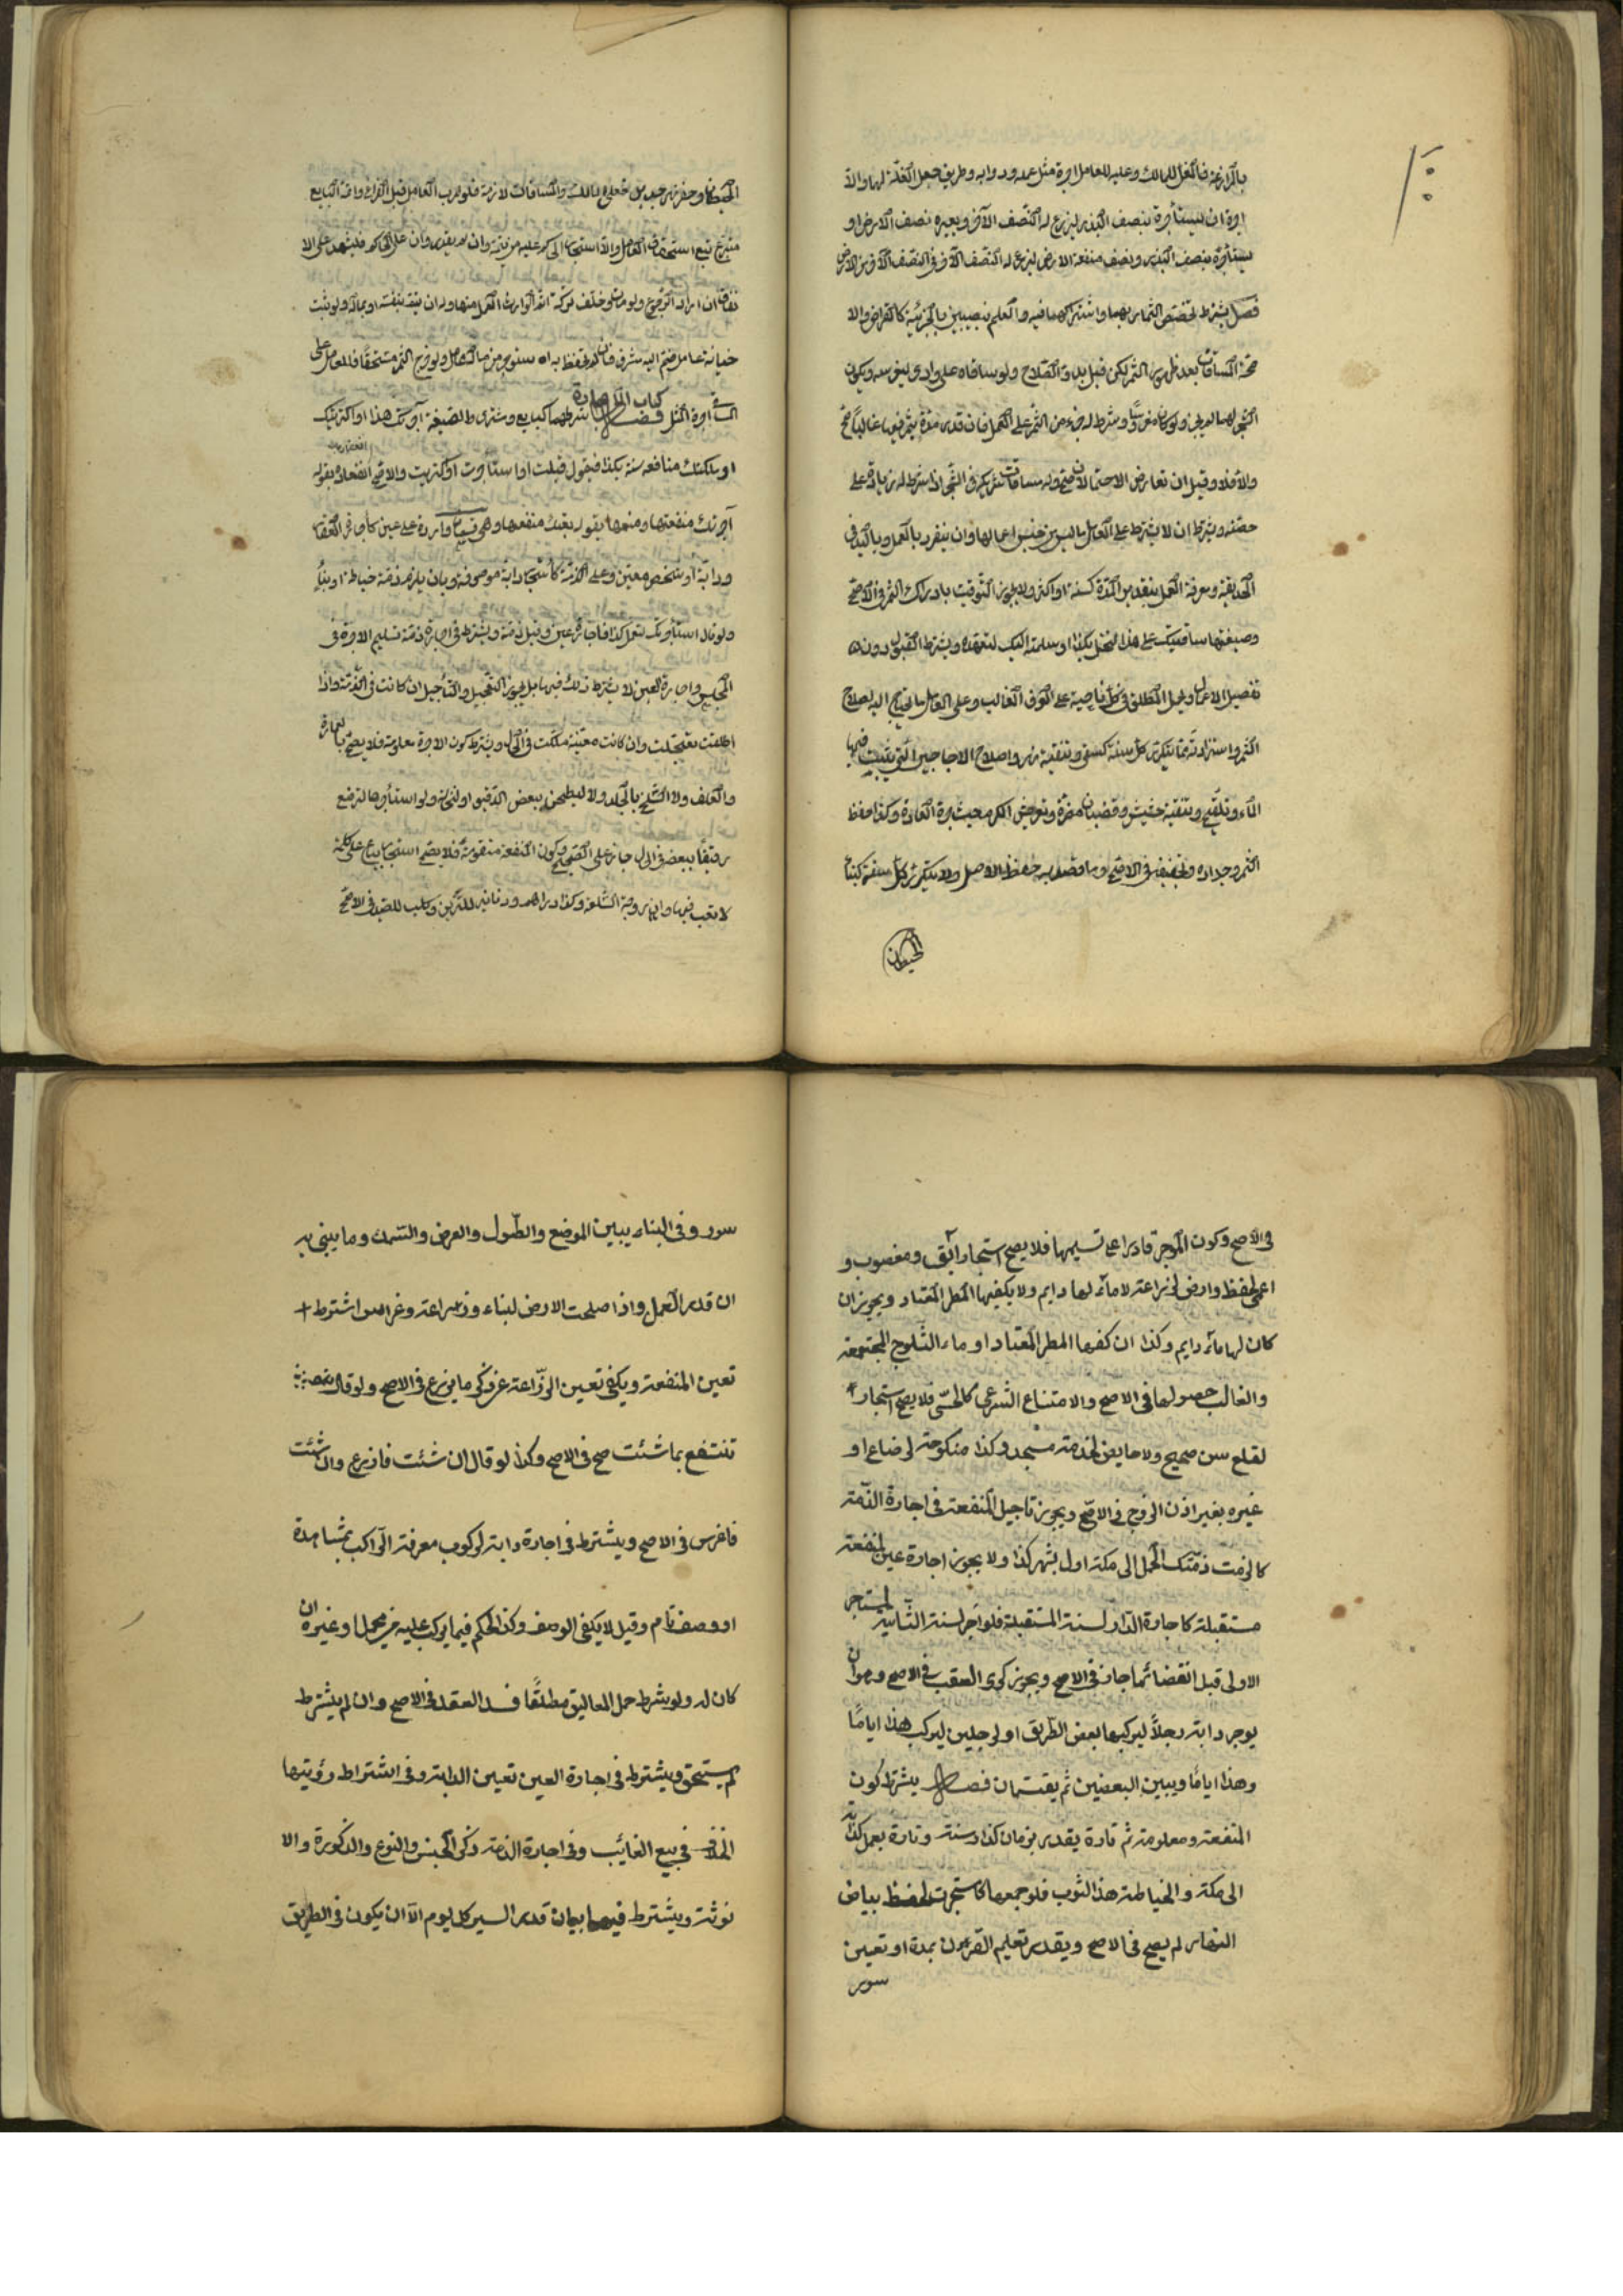 بالمزارعة فالمغل للمالك وعليه للعامل اجرة مثل عمله ودوابه وطريق جعل الغلة لهما ولا
اجرة ان يستأجره بنصف البذر ليزرع له النصف الآخر ويعيره نصف الارض او
يستأجره بنصف البذر ونصف منفعة الارض ليزرع له النصف الآخر في النصف الآخر من الارض
فصل يشترط تخصيص الثمار بهما واشتراكهما فيه والعلم بنصيبين بالجزئية كالقراض والا
صحة المساقات بعد ظهور الثمر لكن قبل بدو الصلاح ولو ساقاه على وادي ليغرسه ويكون
الشجر لهما لم يجز ولو كان مغروسا وشرط له جزء من الثمر على العمل فان قدر مدة يثمر فيها غالبا صح
والا فلا وقيل ان تعارض الاحتمالان صح وله مساقات شريكه في الشجر اذا شرط له زيادة على
حصته ويشترط ان لا يشترط على العامل ما ليس من جنس اعمالها وان ينفرد بالعمل وباليد في
الحديقة ومعرفة العمل بتقدير المدة كسنة او اكثر ولا يجوز التوقيت بادراك الثمر في الاصح
وصيغتها ساقيتك على هذا النخل بكذا او سلمته اليك لتعهده ويشترط القبول دون
تفصيل الاعمال ويحمل المطلق في كل ناحية على العرف الغالب وعلى العامل ما يحتاج اليه لصلاح
الثمر واستزادته مما يتكرر كل سنة كسقي وتنقية نهر واصلاح الاجاجين التي يثبت فيها
الماء وتلقيح وتنقية حشيش وقضبان مضرة وتعريش الكرم حيث جرت العادة وكذا حفظ
الثمر وجداده وتجفيفه في الاصح وما قصد به حفظ الاصل ولا يتكرر كل سنة كبناء
الحيطان
الحيطان وحفر نهر جديد فعلى المالك والمساقات لازمة فلو هرب العامل قبل الفراغ واتمه البايع
متبرع بقي استحقاق العامل والا استأجر الحاكم عليه من يتمه وان لم يقدر وان على الحاكم فليشهد على الا
نفاق ان اراد الرجوع ولو مات وخلف تركة اتم الوارث العمل منها وله ان يتم بنفسه او بماله ولو ثبت
خيانة عامل ضم اليه مشرف فان لم يتحفظ به استؤجر من مال العامل ولو خرج الثمر مستحقا فللعامل على
الساقي اجرة المثل كتاب الاجارة فصل شرطهما كبايع ومشتري والصيغة آجرتك هذا او اكتريتك
او ملكتك منافعه سنة بكذا فيقول قبلت او استأجرت او اكتريت والاصح انعقاده بقوله
آجرتك منفعتها ومنعها بقوله بعتك منفعتها وهي قسمان واردة على عين كاجارة العقار
ودابة او شخص معين وعلى الذمة كاستيجار دابة موصوفة وبان يلزم ذمته خياطة او بناء
ولو قال استأجرتك لتعمل كذا فاجارة عين وقيل ذمة ويشترط في اجارة ذمة تسليم الاجرة في
المجلس واجارة العين لا يشترط ذلك فيها بل يجوز التعجيل والتأجيل ان كانت في الذمة واذا
اطلقت تعجلت وان كانت معينة ملكت في الحال ويشترط كون الاجرة معلومة فلا يصح بالعمارة
والعلف ولا السلخ بالجلد ولا ليطحن ببعض الدقيق او النخالة ولو استأجرها لترضع
رقيقا ببعضه في الحال جاز على الصحيح وكون المنفعة متقومة فلا يصح استيجار بياع على كلمة
لا تعب فيها وان روجت السلعة وكذا دراهم ودنانير للتزين وكلب للصيد في الاصح
في الاصح وكون الموجر قادرا على تسليمها فلا يصح استيجار آبق ومغصوب و
اعمى لحفظ وارض لزراعة لا ماء لها دايم ولا يكفيها المطر المعتاد ويجوز ان
كان لها ماء دايم وكذا ان كفها المطر المعتاد او ماء الثلوج المجتمعة
والغالب حصولها في الاصح والامتناع الشرعي كالحسي فلا يصح استيجار
لقلع سن صحيح ولا حايض لخدمة مسجد وكذا منكوحة لرضاع او
غيره بغير اذن الزوج في الاصح ويجوز تاجيل المنفعة في اجارة الذمة
كالزمت ذمتك الحمل الى مكة اول شهر كذا ولا يجوز اجارة عين لمنفعة
مستقبلة كاجارة الدار لسنة المستقبلة فلو آجر لسنة الثانية لمستاجر
الاولى قبل انقضائها جاز في الاصح ويجوز كرى العقب في الاصح وهو ان
يوجر دابته رجلا ليركبها بعض الطريق او لرجلين ليركب هذا اياما
وهذا اياما ويبين البعضين ثم يقتسمان فصل يشترط كون
المنفعة ومعلومة ثم تارة يقدر بزمان كدار سنة وتارة بعمل كدابة
الى مكة والخياطة هذا الثوب فلو جمعهما كاستجرت لحفظ بياض
النهار لم يصح في الاصح ويقدر تعليم القرءان بمدة او تعيين
سور
سور وفي البناء يبين الموضع والطول والعرض والسمك وما يبنى به
ان قدر العمل واذا صلحت الارض لبناء وزراعة وغراس اشترط
تعين المنفعة ويكفي تعيين الزراعة عن ذكر ما يزرع في الاصح ولو قال
تنتفع بما شئت صح في الاصح وكذا لو قال ان شئت فازرع وان شئت
فاغرس في الاصح ويشترط في اجارة دابة لركوب معرفة الراكب بمشاهدة
او وصف تام وقيل لا يكفي الوصف وكذا الحكم فيما يركب عليه من محمل او غيره ان
كان له ولو شرط حمل المعاليق مطلقا فسد العقد في الاصح وان لم يشترط
لم يستحق ويشترط في اجارة العين تعيين الدابة وفي اشتراط رؤيتها
الخلاف في بيع الغايب وفي اجارة الذمة ذكر الجنس والنوع والذكورة والا
نوثة ويشترط فيهما بيان قدر السير كل يوم الا ان يكون في الطريق